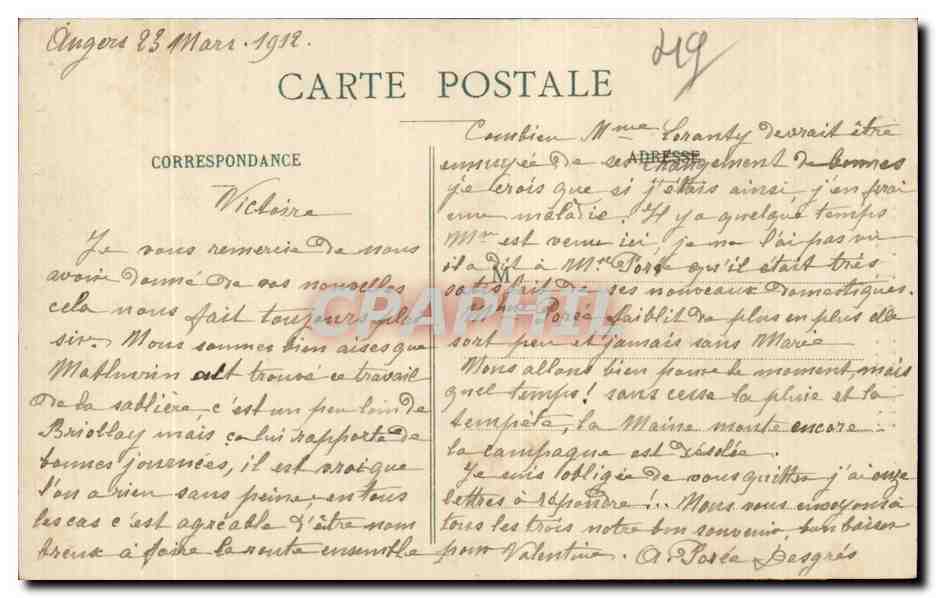 Angers 23 Mars. 1912.
49
CARTE POSTALE
CORRESPONDANCE
Victoire
Je vous remercie de nous
avoir donné de vos nouvelles
cela nous fait toujours plai
sir. Nous sommes bien aises que
Mathurin ait trouvé ce travail
de la sablière, c'est un peu loin de
Briollay mais ça lui rapporte de
bonnes journées, il est vrai que
l'on a rien sans peine, en tous
les cas c'est agréable d'être nom
breux à faire la route ensemble
ADRESSE
Combien Mme devrait être
ennuyée de ses changement de bonnes
je crois que si j'étais ainsi j'en frai
une maladie. Il y a quelque temps
Mr est venu ici, je ne l'ai pas vu
il a dit à Mr Porée qu'il était très
M
satisfait de ses nouveaux domestiques.
Mme Porée faiblit de plus en plus elle
sort peu et jamais sans Marie
CPAPHIL
Nous allons bien pour le moment, mais
quel temps! sans cesse la pluie et la
tempête, la Maine monte encore
la campagne est
Je suis obligée de vous quitter j'ai onze
lettres à répondre!.. Nous vous envoyons à
tous les trois notre bon souvenir, bon baiser
pour Valentine. A. Porée Desgrés